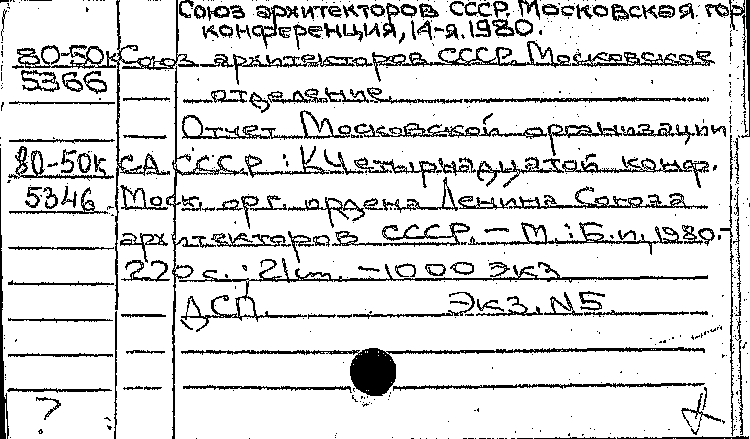 Союз архитекторов СССР. Московская гор
конференция, 14-я. 1980.
80-50к Союз архитекторов СССР. Московское
5366
отделение.
Отчет Московской организации
80-50к СА СССР : К Четырнадцатой конф.
5346 Моск. орг. ордена Ленина Союза
архитекторов СССР. — М. : Б.и., 1980. -
220 с. ; 21 см. — 1000 экз
ДСП. Экз. N5.
?